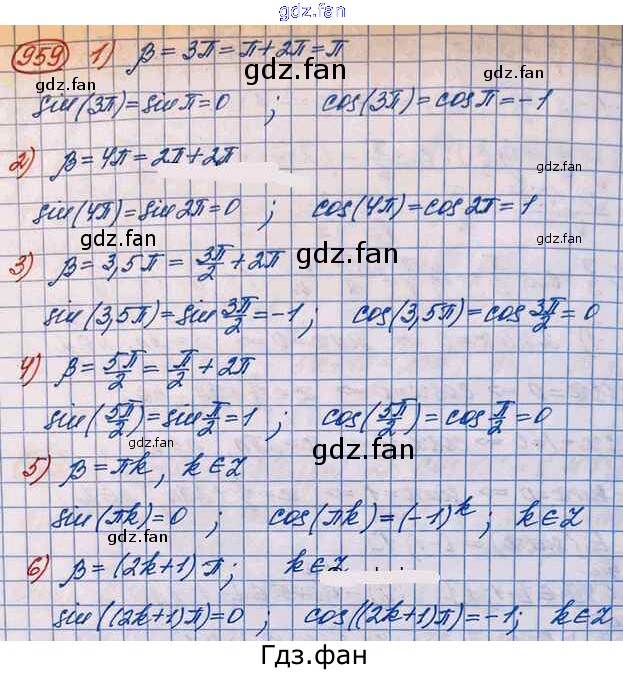 gdz.fan
959 1) β = 3π = π + 2π = π
gdz.fan gdz.fan
sin(3π) = sin π = 0 ; cos(3π) = cos π = -1
gdz.fan
2) β = 4π = 2π + 2π
gdz.fan
sin(4π) = sin 2π = 0 ; cos(4π) = cos 2π = 1
gdz.fan gdz.fan
3) β = 3,5π = 3π/2 + 2π
gdz.fan
sin(3,5π) = sin 3π/2 = -1 ; cos(3,5π) = cos 3π/2 = 0
gdz.fan
4) β = 5π/2 = π/2 + 2π
gdz.fan
sin(5π/2) = sin π/2 = 1 ; cos(5π/2) = cos π/2 = 0
gdz.fan gdz.fan
5) β = πk, k ∈ Z
sin(πk) = 0 ; cos(πk) = (-1)^k ; k ∈ Z
gdz.fan gdz.fan
6) β = (2k+1)π ; k ∈ Z
gdz.fan
sin((2k+1)π) = 0 ; cos((2k+1)π) = -1 ; k ∈ Z
Гдз.фан